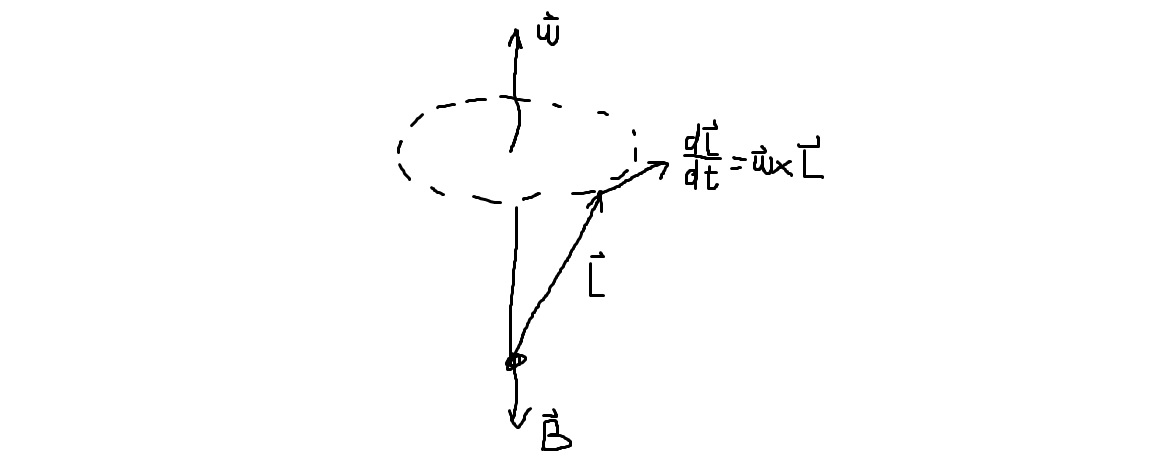 w⃗
dL⃗/dt = w⃗ × L⃗
L⃗
B⃗